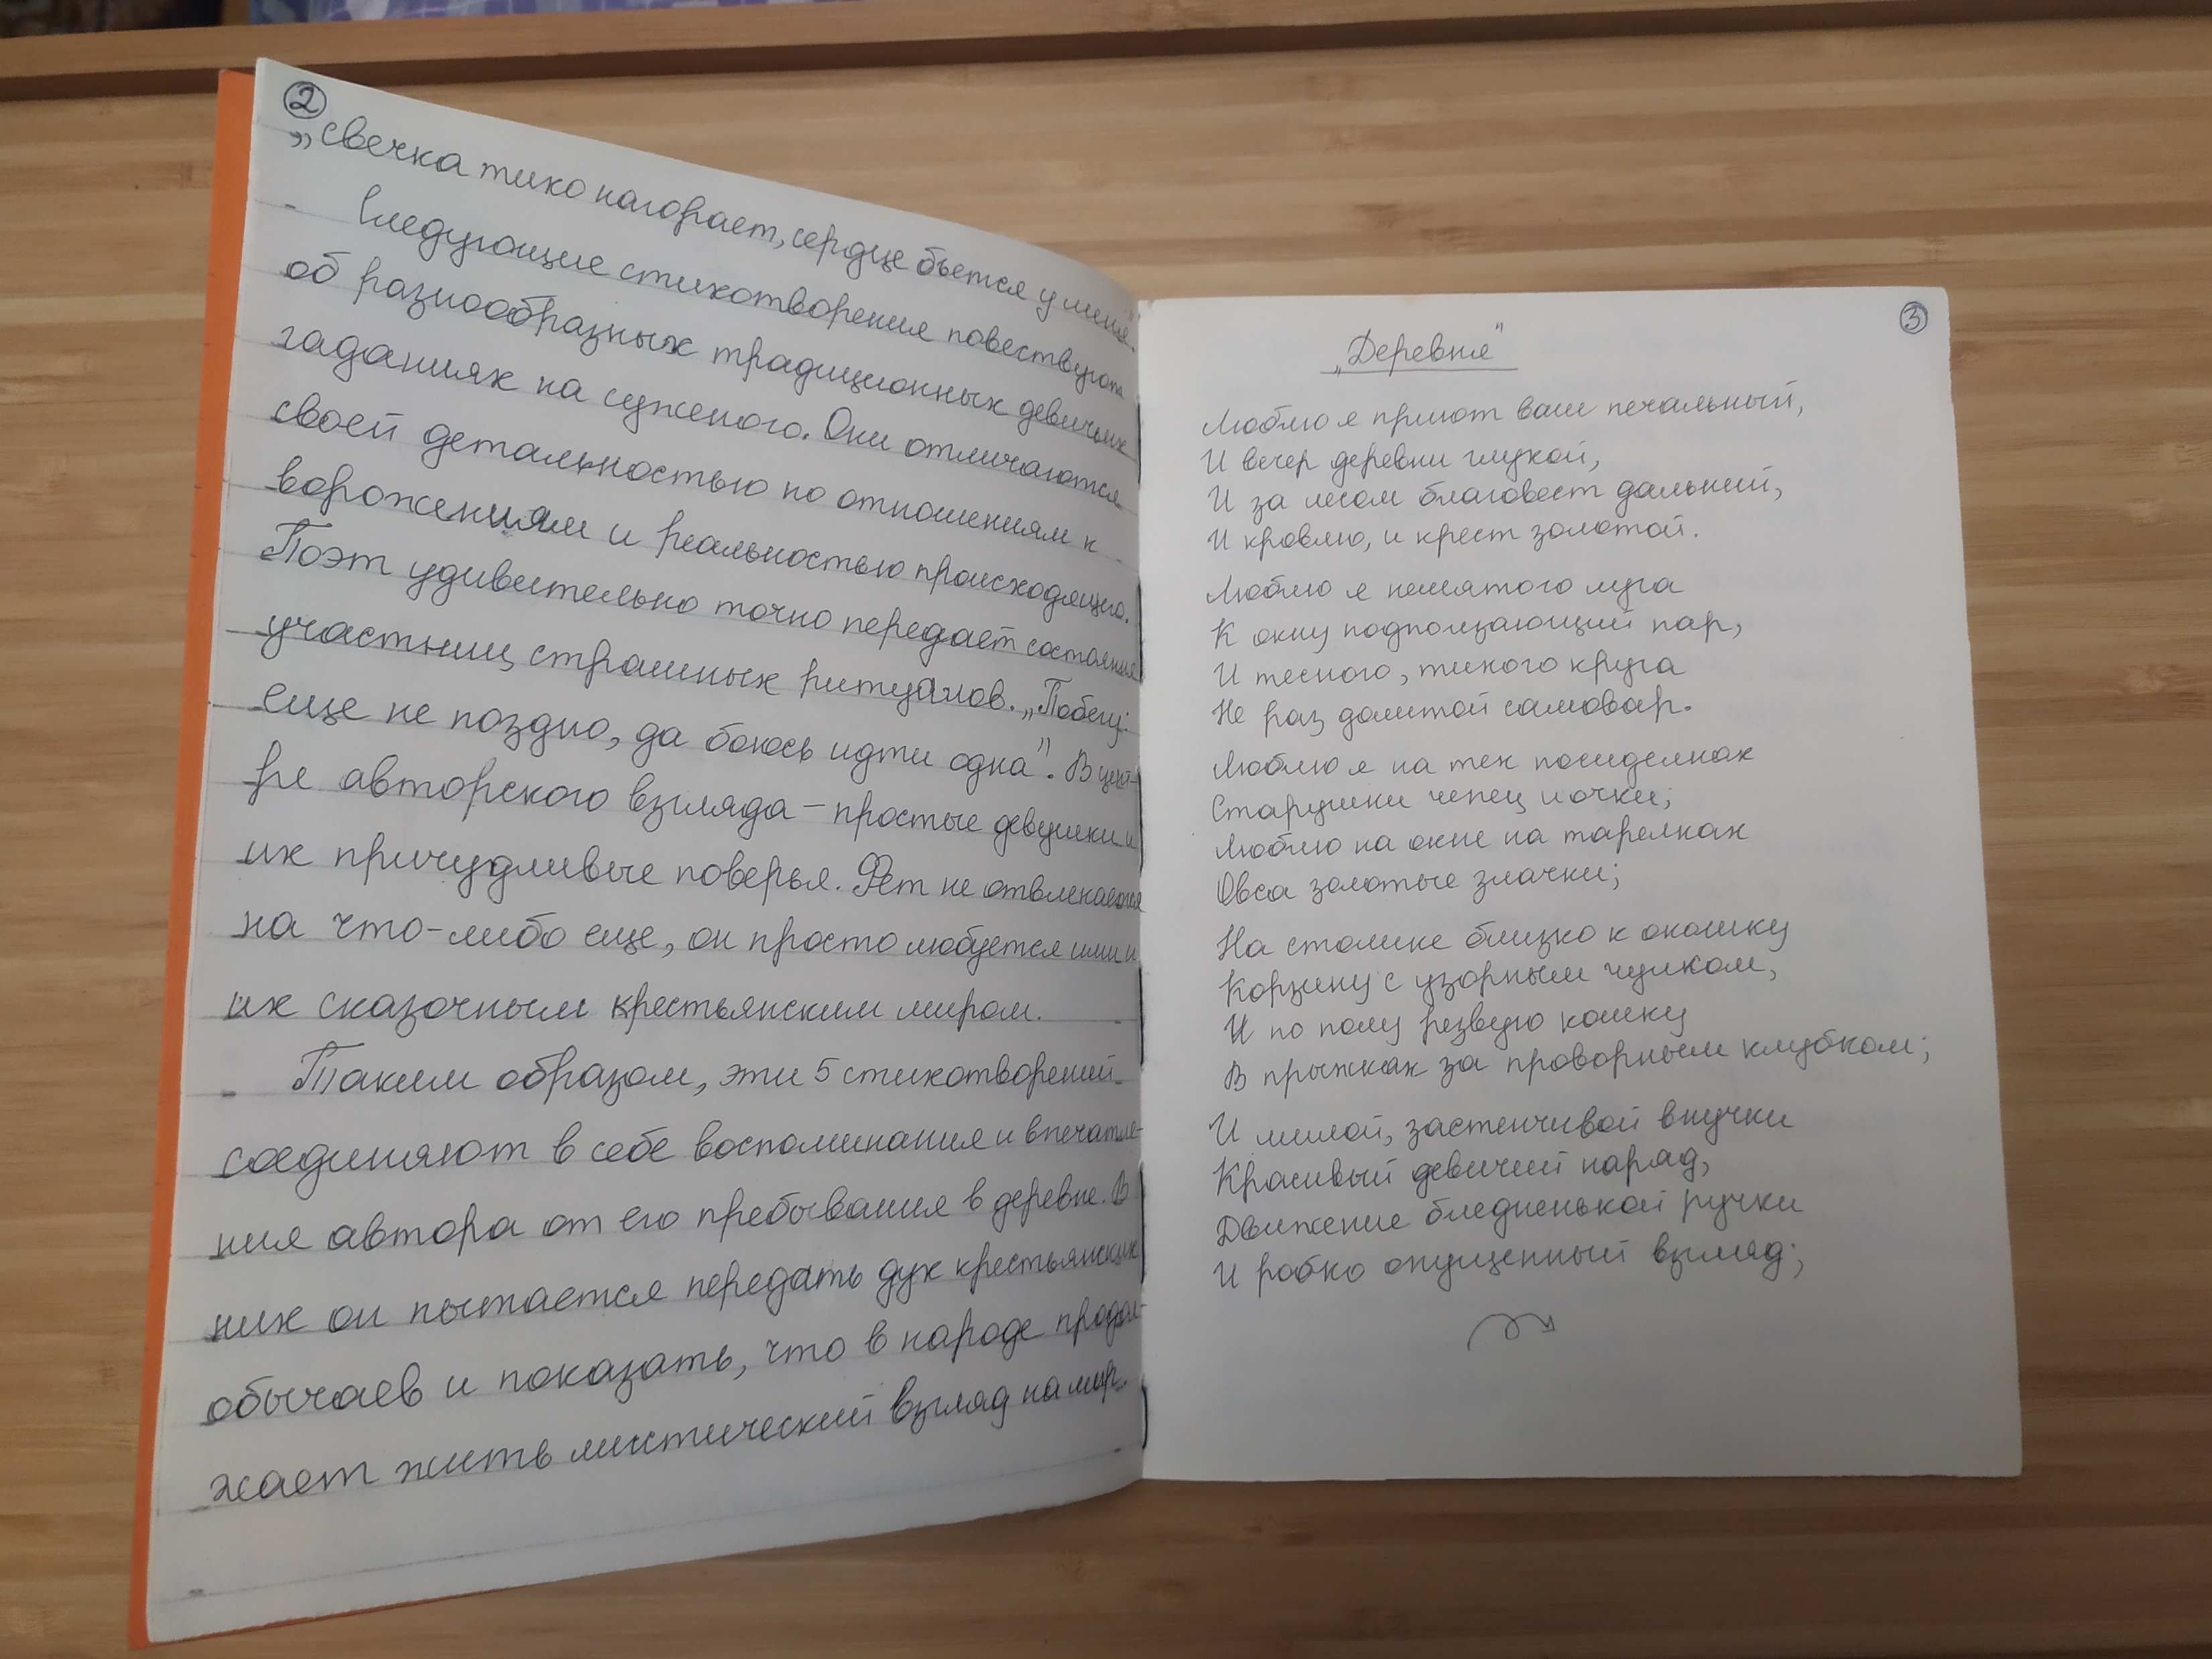 2
„свечка тихо нагорает, сердце бьется у меня".
Следующие стихотворения повествуют
об разнообразных традиционных девичьих
гаданиях на суженого. Они отличаются
своей детальностью по отношениям к
ворожениям и реальностью происходящего.
Поэт удивительно точно передает состояния
участниц страшных ритуалов. „Побегу:
еще не поздно, да боюсь идти одна". В цент-
ре авторского взгляда – простые девушки и
их причудливые поверья. Фет не отвлекается
на что-либо еще, он просто любуется ими и
их сказочным крестьянским миром.
Таким образом, эти 5 стихотворений
соединяют в себе воспоминания и впечатле-
ния автора от его пребывания в деревне. В
них он пытается передать дух крестьянских
обычаев и показать, что в народе продол-
жает жить мистический взгляд на мир.
3
„Деревня"
Люблю я приют ваш печальный,
И вечер деревни глухой,
И за лесом благовест дальний,
И кровлю, и крест золотой.
Люблю я немятого луга
К окну подползающий пар,
И тесного, тихого круга
Не раз долитой самовар.
Люблю я на тех посиделках
Старушки чепец и очки;
Люблю на окне на тарелках
Овса золотые злачки;
На столике близко к окошку
Корзину с узорным чулком,
И по полу резвую кошку
В прыжках за проворным клубком;
И милой, застенчивой внучки
Красивый девичий наряд,
Движение бледненькой ручки
И робко опущенный взгляд;